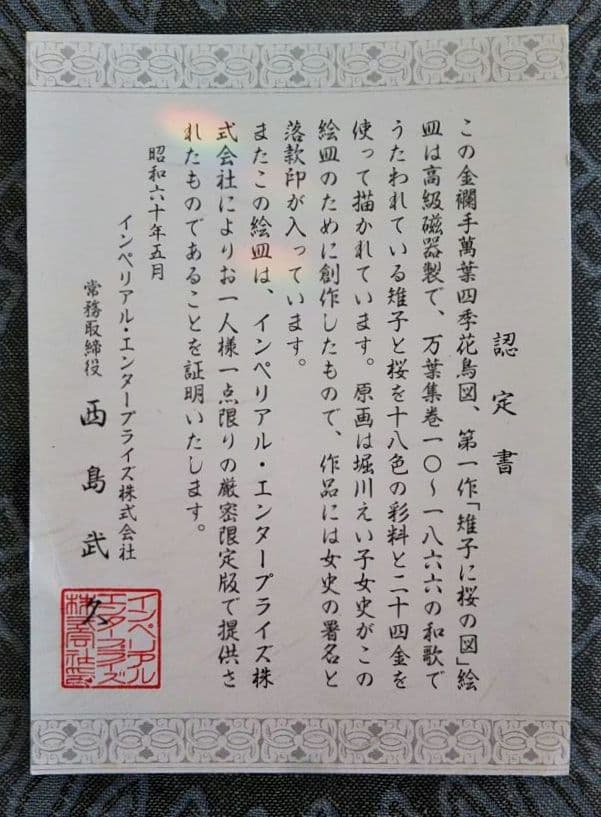 認定書
この金襴手萬葉四季花鳥図、第一作「雉子に桜の図」絵
皿は高級磁器製で、万葉集巻一〇〜一八六六の和歌で
うたわれている雉子と桜を十八色の彩料と二十四金を
使って描かれています。原画は堀川えい子女史がこの
絵皿のために創作したもので、作品には女史の署名と
落款印が入っています。
またこの絵皿は、インペリアル・エンタープライズ株
式会社によりお一人様一点限りの厳密限定版で提供さ
れたものであることを証明いたします。
昭和六十年五月
インペリアル・エンタープライズ株式会社
常務取締役 西島武久
インペリアル
エンタープライズ
株式会社印